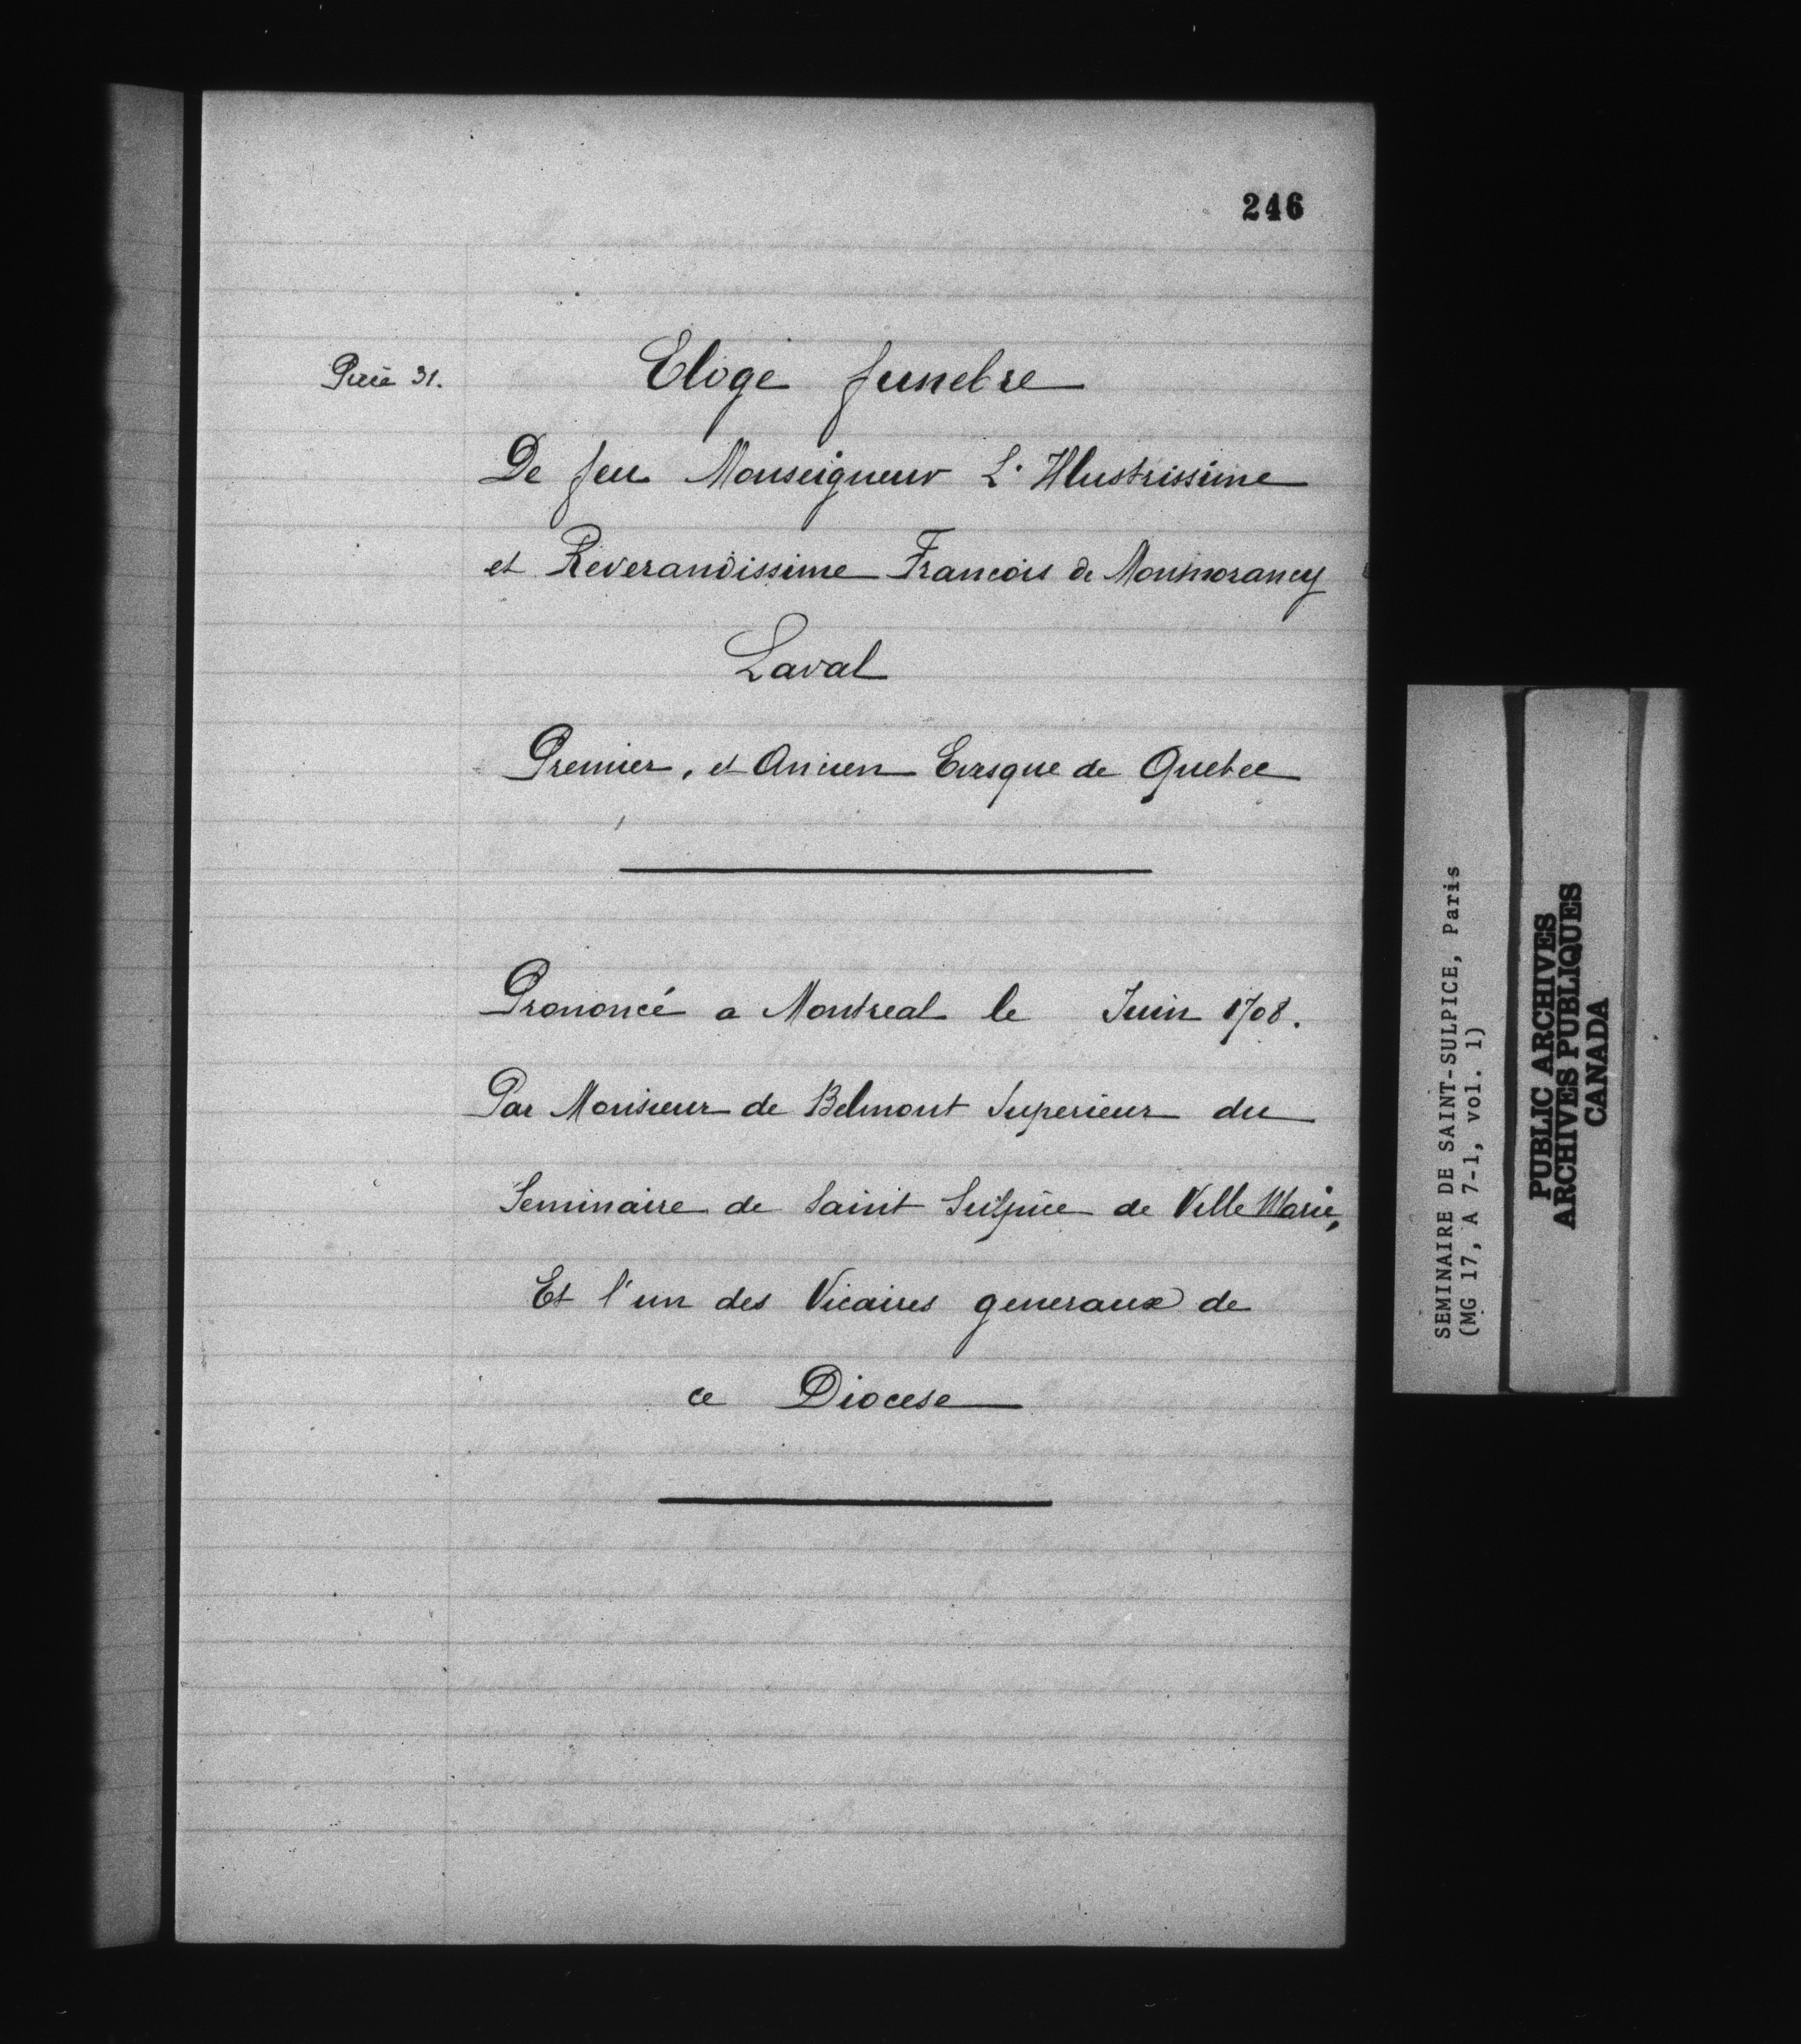 246
Piece 31.
Eloge funebre
De feu Monseigneur L'Illustrissime
et Reverandissime Francois de Montmorancy
Laval
Premier, et Ancien Evesque de Quebec
Prononcé a Montreal le Juin 1708.
Par Monsieur de Belmont Superieur du
Seminaire de Saint Sulpice de Ville Marie,
Et l'un des Vicaires generaux de
ce Diocese
SEMINAIRE DE SAINT-SULPICE, Paris
(MG 17, A 7-1, vol. 1)
PUBLIC ARCHIVES
ARCHIVES PUBLIQUES
CANADA